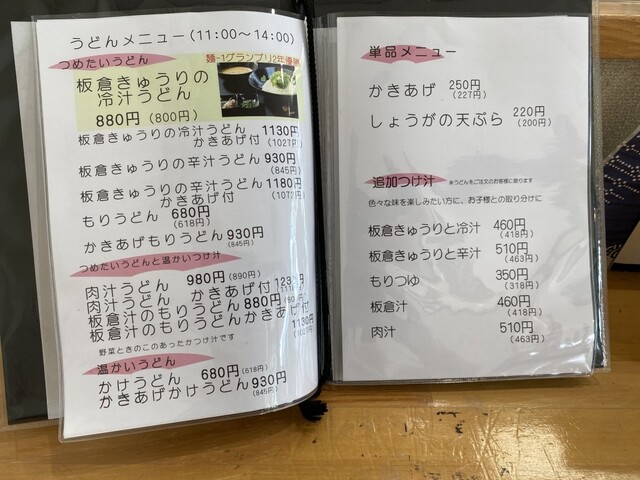 うどんメニュー(11:00～14:00)
つめたいうどん
麺-1グランプリ2年優勝
板倉きゅうりの
冷汁うどん
880円 (800円)
板倉きゅうりの冷汁うどん 1130円
かきあげ付 (1027円)
板倉きゅうりの辛汁うどん 930円
(845円)
板倉きゅうりの辛汁うどん 1180円
かきあげ付 (1072円)
もりうどん 680円
(618円)
かきあげもりうどん 930円
(845円)
つめたいうどんと温かいつけ汁
肉汁うどん 980円 (890円)
肉汁うどん かきあげ付
板倉汁のもりうどん 880円
板倉汁のもりうどんかきあげ付
1130円
野菜ときのこのあったかつけ汁です
温かいうどん
かけうどん 680円 (618円)
かきあげかけうどん 930円
(845円)
単品メニュー
かきあげ 250円
(227円)
しょうがの天ぷら 220円
(200円)
追加つけ汁 ※うどんをご注文のお客様に限ります
色々な味を楽しみたい方に、お子様との取り分けに
板倉きゅうりと冷汁 460円
(418円)
板倉きゅうりと辛汁 510円
(463円)
もりつゆ 350円
(318円)
板倉汁 460円
(418円)
肉汁 510円
(463円)